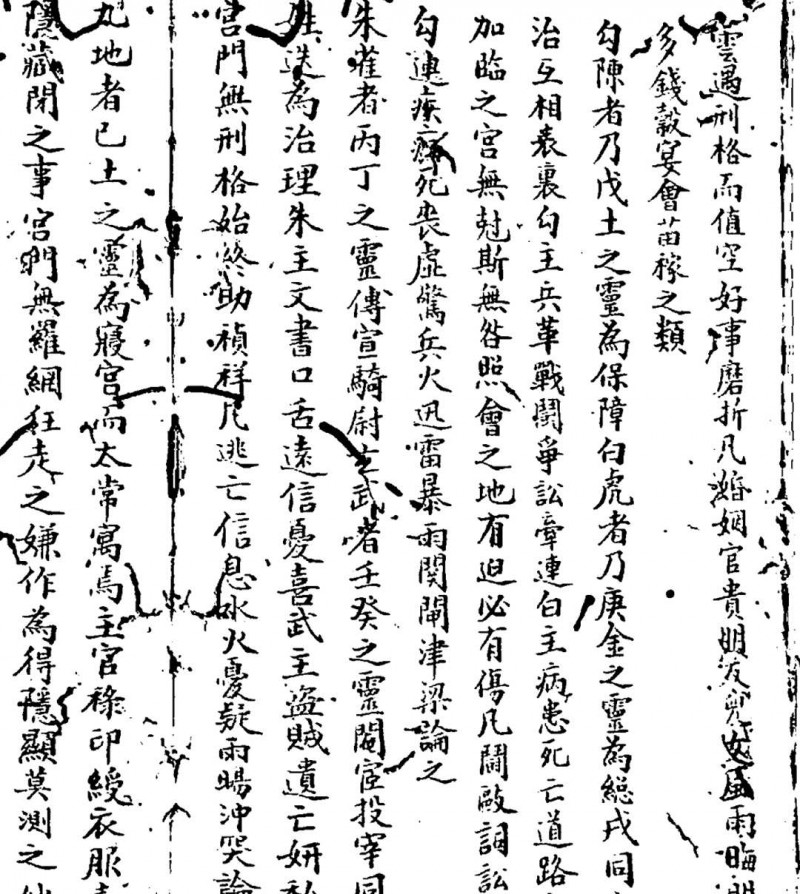 雲遇刑格而值空好事磨折凡婚姻官貴朋友兒女風雨晦明
多錢穀宴會苗稼之類
勾陳者乃戊土之靈為保障白虎者乃庚金之靈為總戎同
治互相表裏勾主兵革戰鬭爭訟牽連白主病患死亡道路
加臨之宮無尅斯無咎照會之地有迫必有傷凡鬪毆詞訟
勾連疾病死喪虛驚兵火迅雷暴雨関閘津梁論之
朱雀者丙丁之靈傳宣騎尉玄武者壬癸之靈閽宦投宰同
姓迭為治理朱主文書口舌遠信憂喜武主盜賊遺亡姸私
宮門無刑格始終助禎祥凡逃亡信息水火憂疑雨暘沖哭論
九地者已土之靈為寢宮而太常寓焉主官祿印綬衣服
隱藏閉之事宮門無羅網狂走之嫌作為得隱顯莫測之